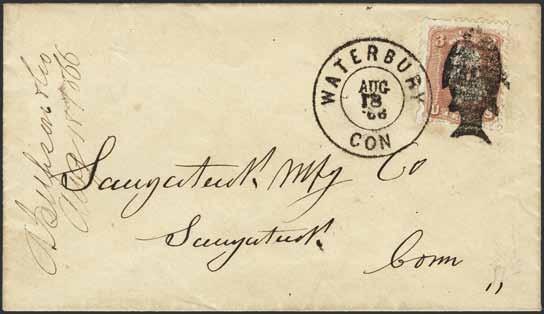 WATERBURY
AUG
18
'66
CON
3
U
Saugatuck Mfg Co
Saugatuck
Conn
Aug 18th 1866